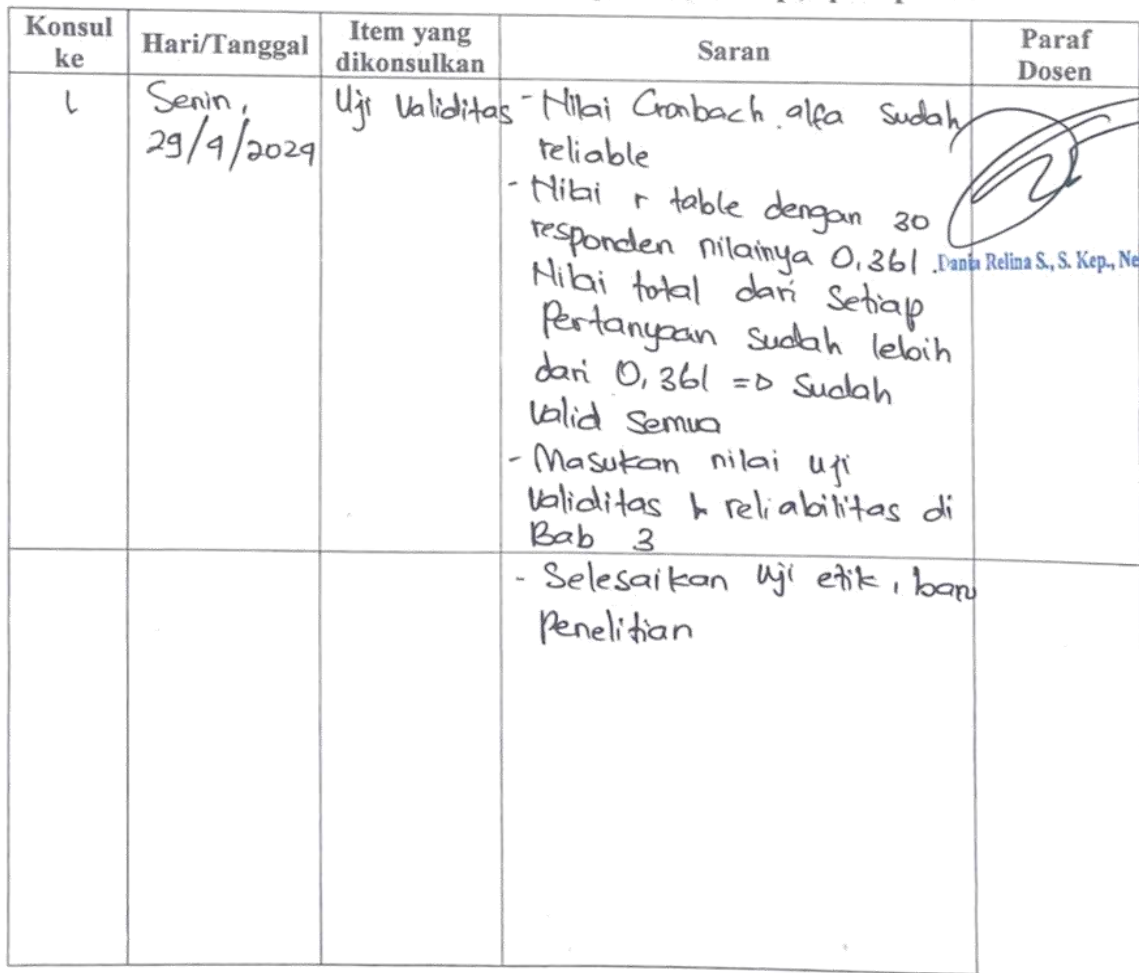 Konsul ke
Hari/Tanggal
Item yang dikonsulkan
Saran
Paraf Dosen
1
Senin,
29/4/2024
Uji Validitas
- Nilai Cronbach alfa sudah
reliable
- Nilai r table dengan 30
responden nilainya 0,361.
Nilai total dari Setiap
Pertanyaan sudah lebih
dari 0,361 => Sudah
Valid Semua
- Masukan nilai uji
Validitas & reliabilitas di
Bab 3
Dania Relina S., S. Kep., Ne
- Selesaikan Uji etik, baru
Penelitian